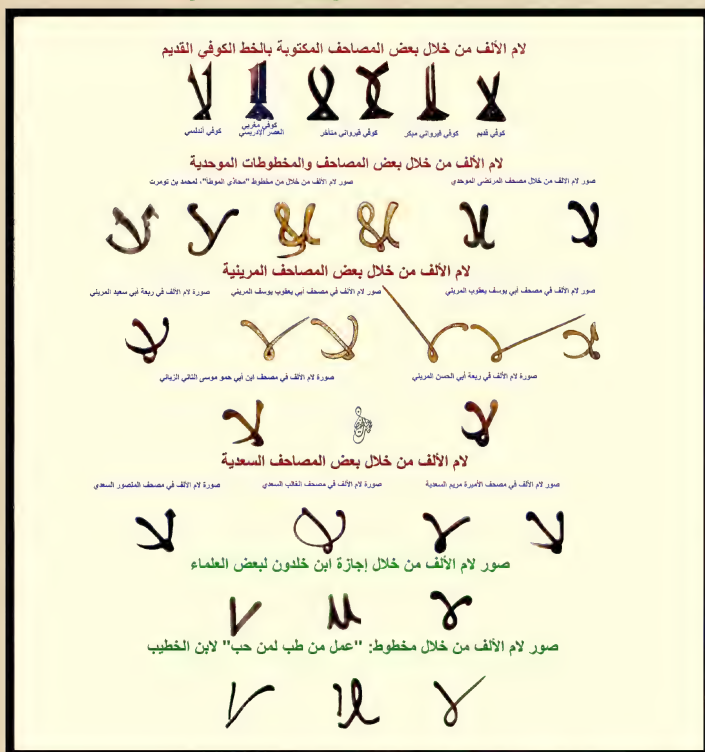 لام الألف من خلال بعض المصاحف المكتوبة بالخط الكوفي القديم
كوفي قديم
كوفي قيرواني مبكر
كوفي قيرواني متأخر
كوفي مغربي
العصر الإدريسي
كوفي أندلسي
لام الألف من خلال بعض المصاحف والمخطوطات الموحدية
صور لام الألف من خلال مصحف المرتضى الموحدي
صور لام الألف من خلال من مخطوط "محاذي الموطأ"، لمحمد بن تومرت
لام الألف من خلال بعض المصاحف المرينية
صور لام الألف في مصحف أبي يوسف يعقوب المريني
صور لام الألف في مصحف أبي يعقوب يوسف المريني
صورة لام الألف في ربعة أبي سعيد المريني
صورة لام الألف في ربعة أبي الحسن المريني
صورة لام الألف في مصحف ابن أبي حمو موسى الثاني الزياني
لام الألف من خلال بعض المصاحف السعدية
صور لام الألف في مصحف الأميرة مريم السعدية
صورة لام الألف في مصحف الغالب السعدي
صورة لام الألف في مصحف المنصور السعدي
صور لام الألف من خلال إجازة ابن خلدون لبعض العلماء
صور لام الألف من خلال مخطوط: "عمل من طب لمن حب" لابن الخطيب